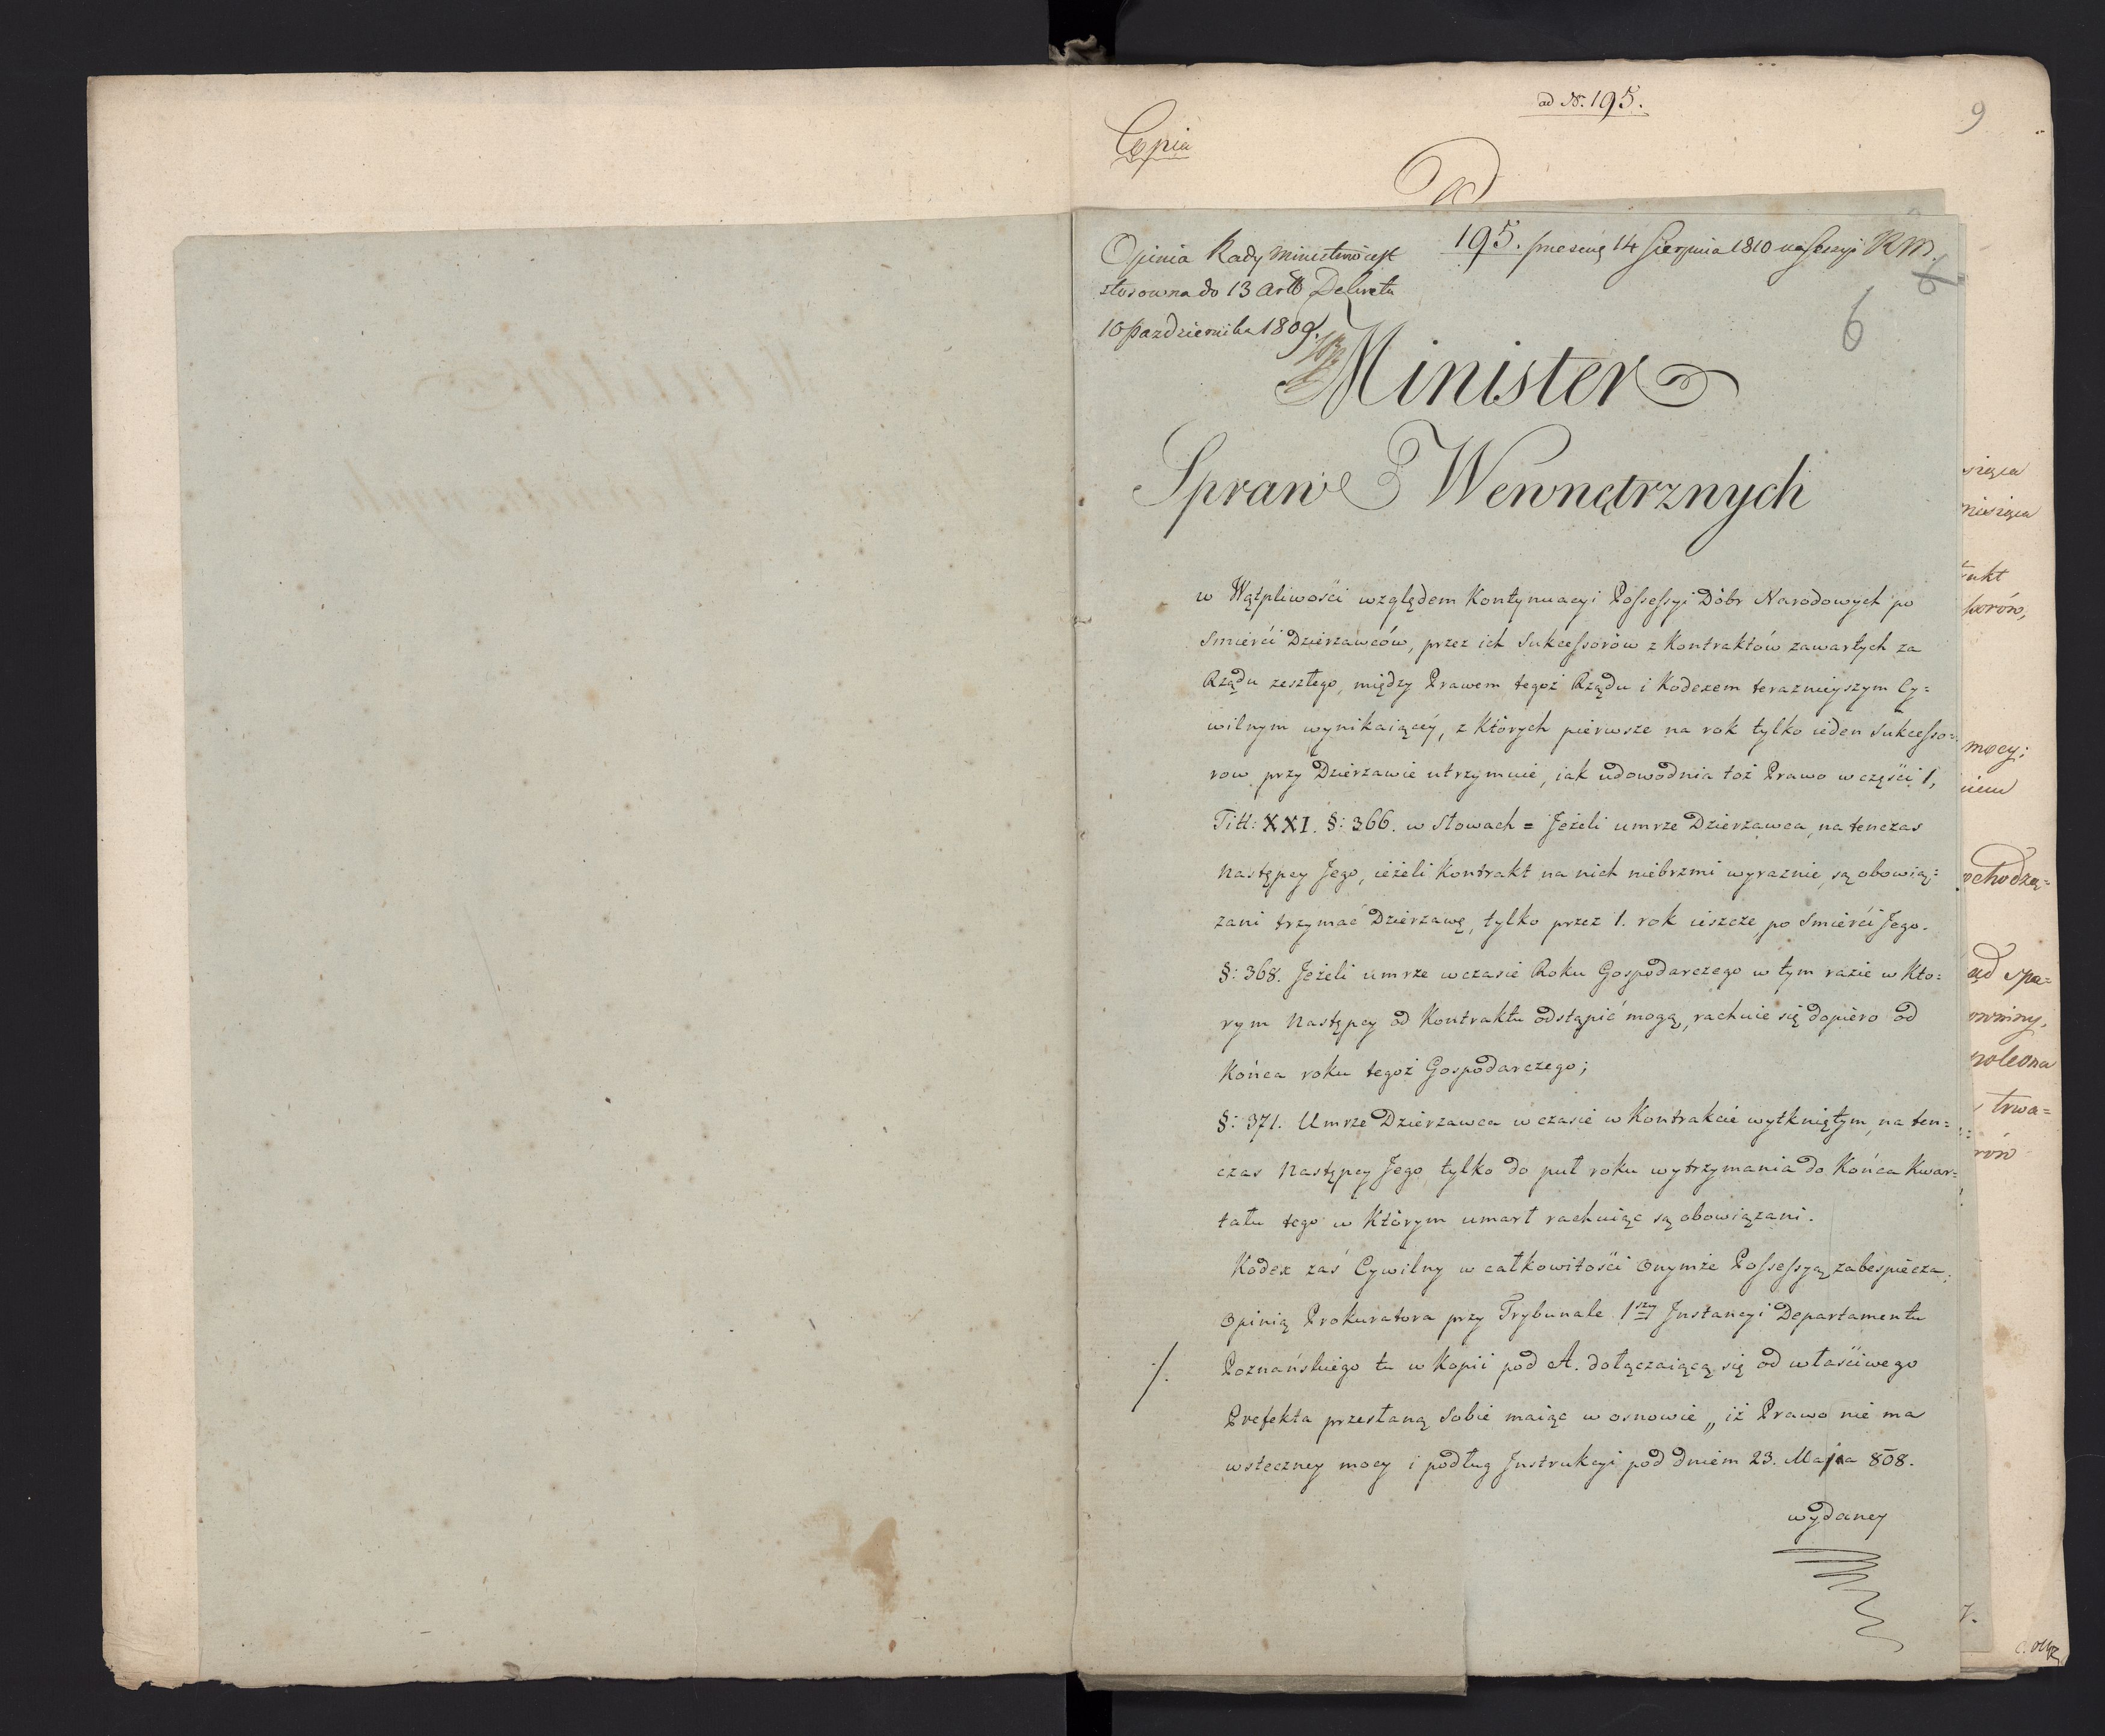 ad N. 195.
9
Copia
Opinia Rady Ministrów iest
stosowna do 13 Artt Dekretu
10 Pazdziernika 1809.
195. 14 Sierpnia 1810 na Sessyi RM.
6
Minister
Spraw Wewnętrznych
w Wątpliwości względem Kontynuacyi Possessyi Dóbr Narodowych po
Smierci Dzierzawców, przez ich Sukcessorów z Kontraktów zawartych za
Rządu zeszłego, między Prawem tegoż Rządu i Kodexem teraznieyszym Cy=
wilnym wynikaiącéy, z których pierwsze na rok tylko ieden Sukcesso=
row przy Dzierzawie utrzymuie, iak udowodnia toż Prawo w części 1,
Titt: XXI. §: 366. w Słowach = Jeżeli umrze Dzierzawca, na tenczas
Następcy Jego, ieżeli Kontrakt na nich niebrzmi wyraznie, są obowią=
zani trzymać Dzierzawę, tylko przez 1. rok ieszcze, po Smierci Jego.
§: 368. Jeżeli umrze w czasie Roku Gospodarczego w tym razie w Kto=
rym Następcy od Kontraktu odstąpić mogą, rachuie się dopiero od
Końca roku tegoż Gospodarczego;
§: 371. Umrze Dzierzawca w czasie w Kontrakcie wytkniętym, na ten=
czas Następcy Jego tylko do puł roku wytrzymania do Końca Kwar=
tału tego w Którym umarł rachuiąc są obowiązani.
Kodex zaś Cywilny w całkowitości Onymże Possessyą zabespiecza;
Opinią Prokuratora przy Trybunale 1szy Jnstancyi Departamentu
Poznańskiego tu w Kopii pod A. dołączaiącą się od właściwego
Prefekta przesłaną Sobie maiąc w osnowie „ iż Prawo nie ma
wsteczney mocy i podług Jnstrukcyi pod dniem 23. Maja 808.
wydaney
mocy;
ochodzą=
ąd spa=
poleona
trwa=